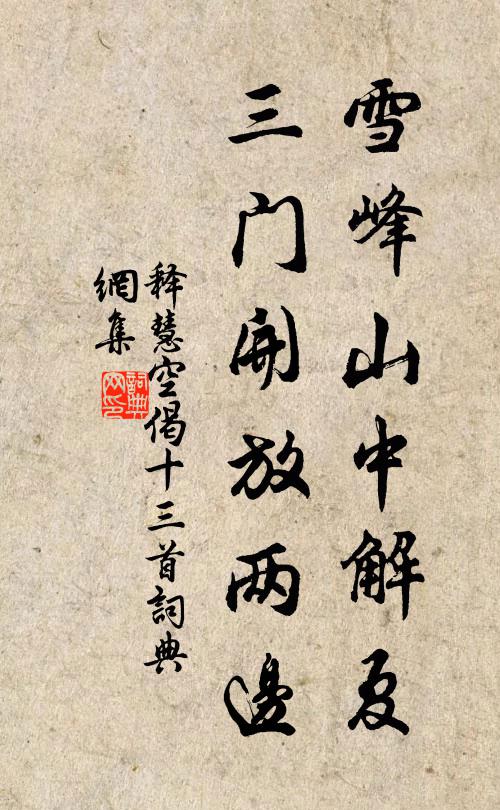 雪峰山中解夏
三门开放两邊
释慧空偈十三首詞典
網集
詞典
网印